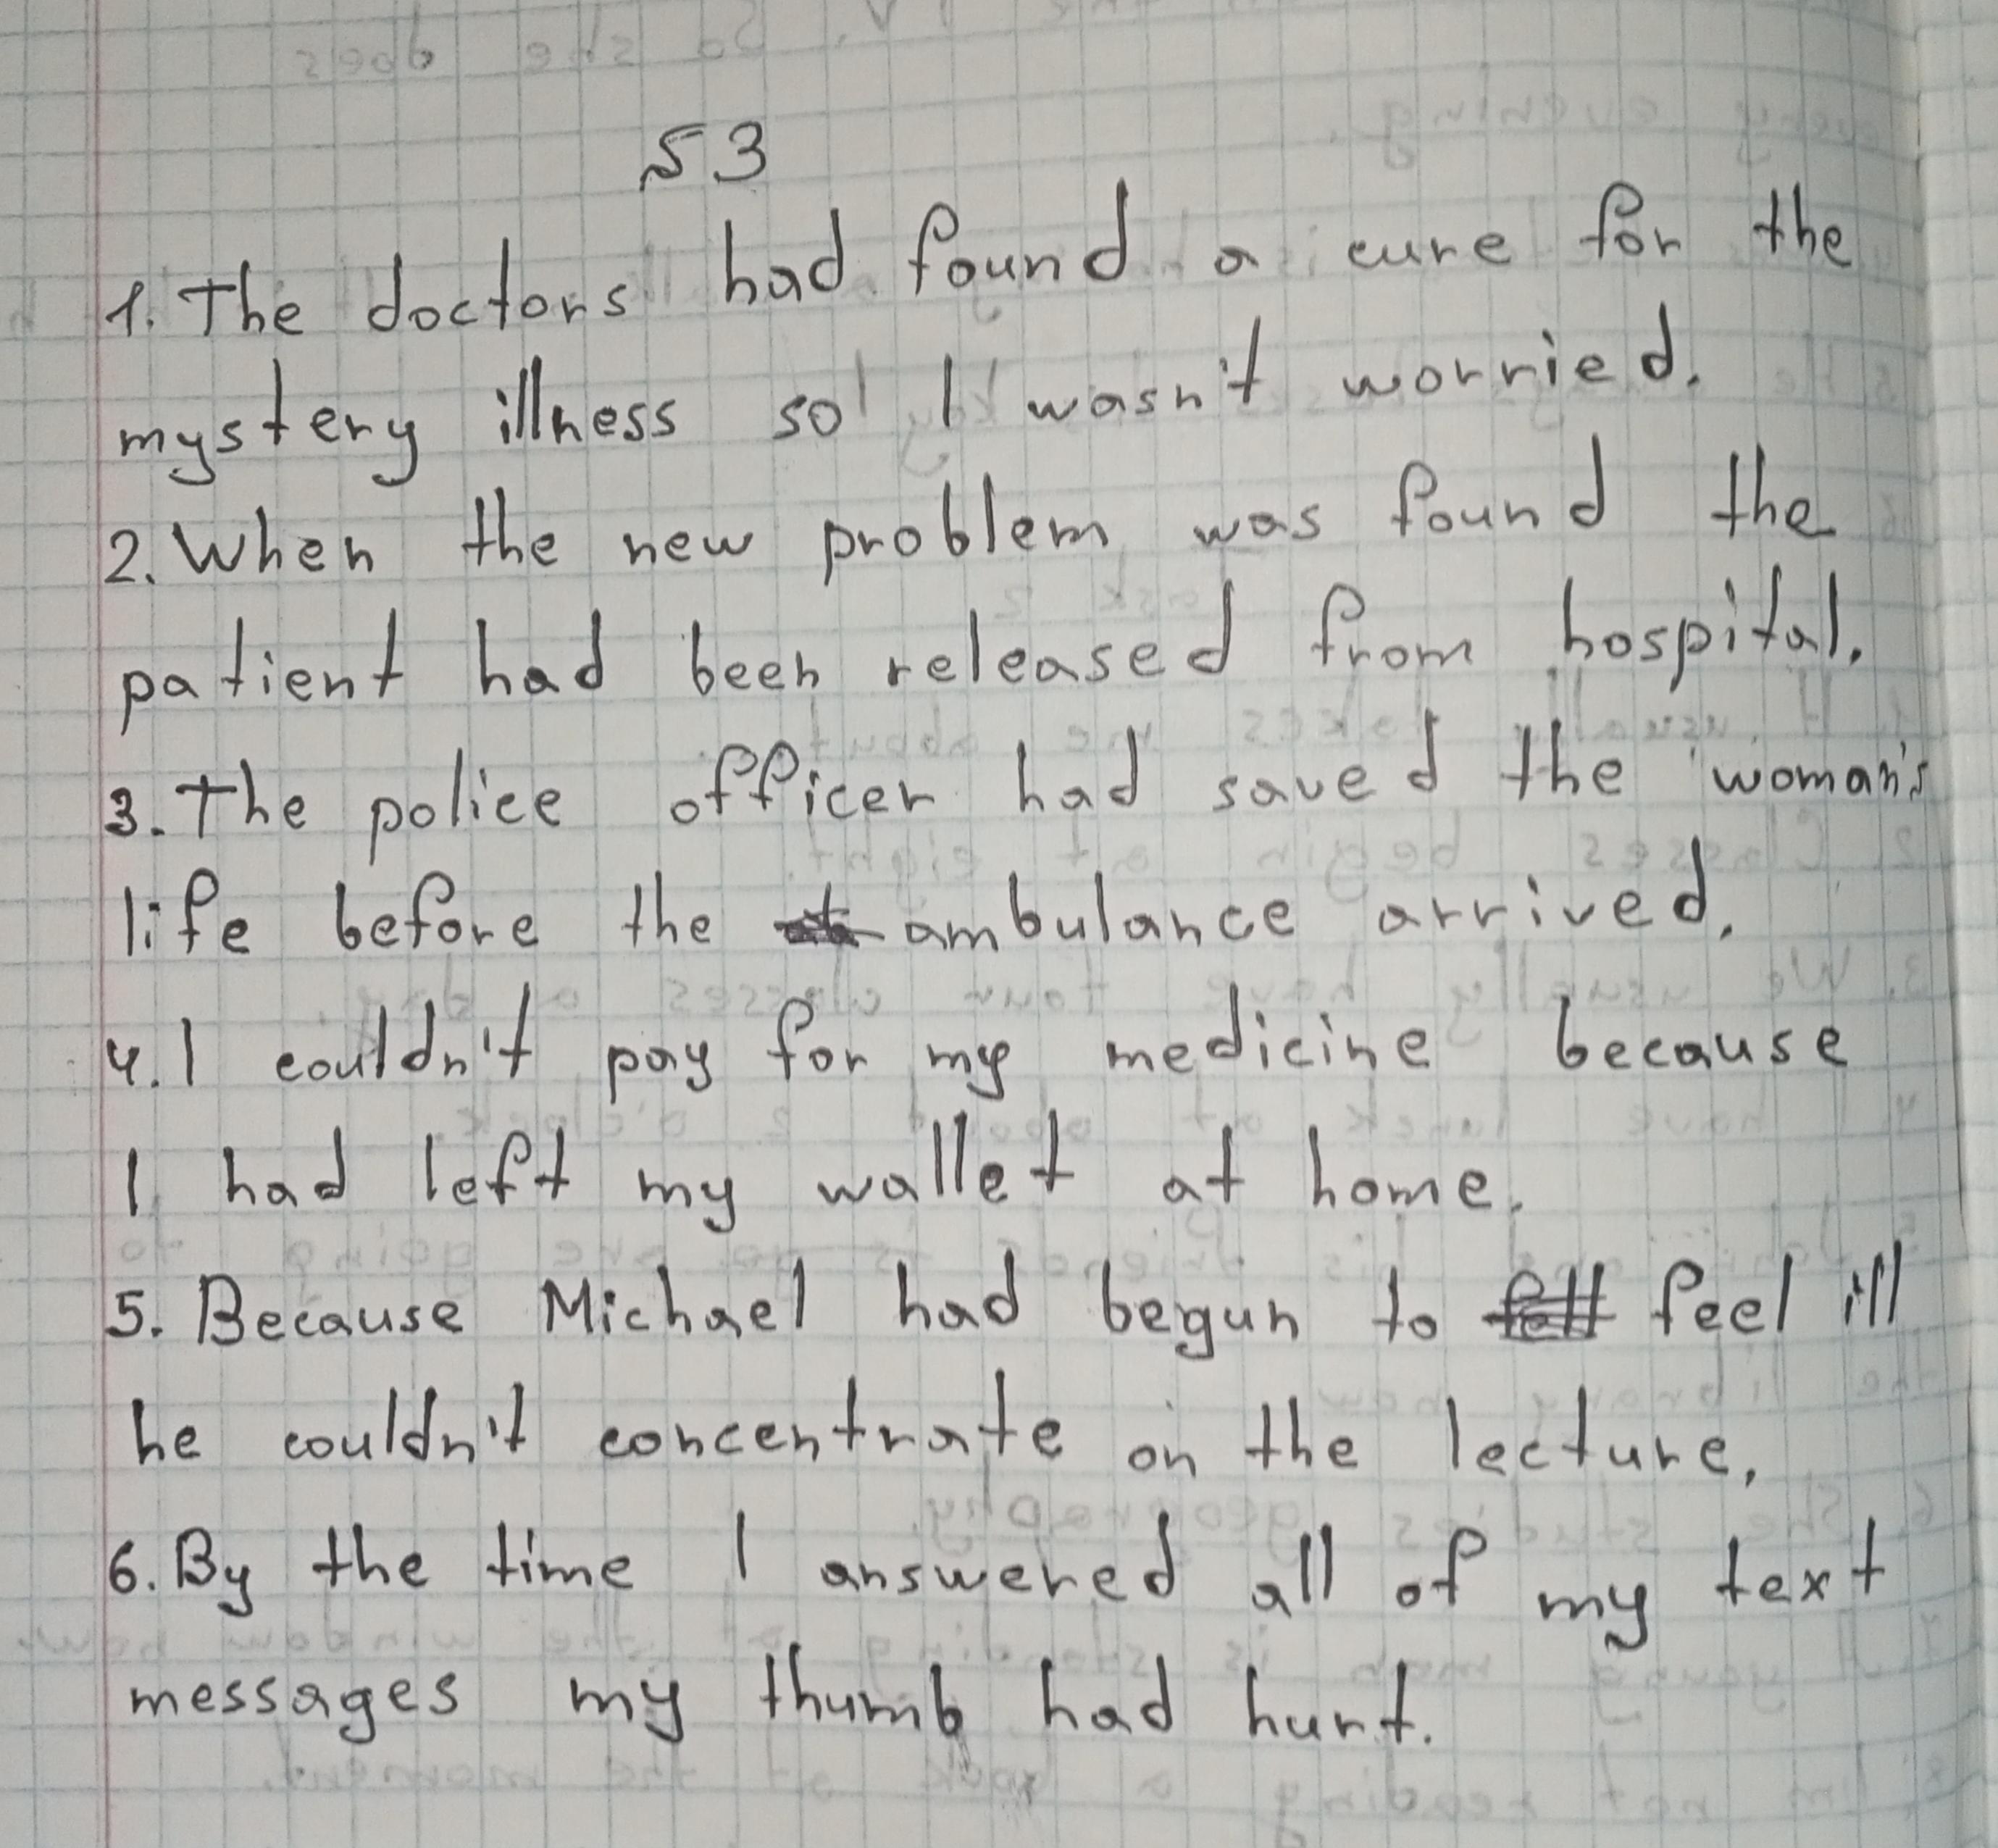 53
1. The doctors had found a cure for the
mystery illness so I wasn't worried.
2. When the new problem was found the
patient had been released from hospital.
3. The police officer had saved the woman's
life before the ambulance arrived.
4. I couldn't pay for my medicine because
I had left my wallet at home.
5. Because Michael had begun to feel ill
he couldn't concentrate on the lecture.
6. By the time I answered all of my text
messages my thumb had hurt.